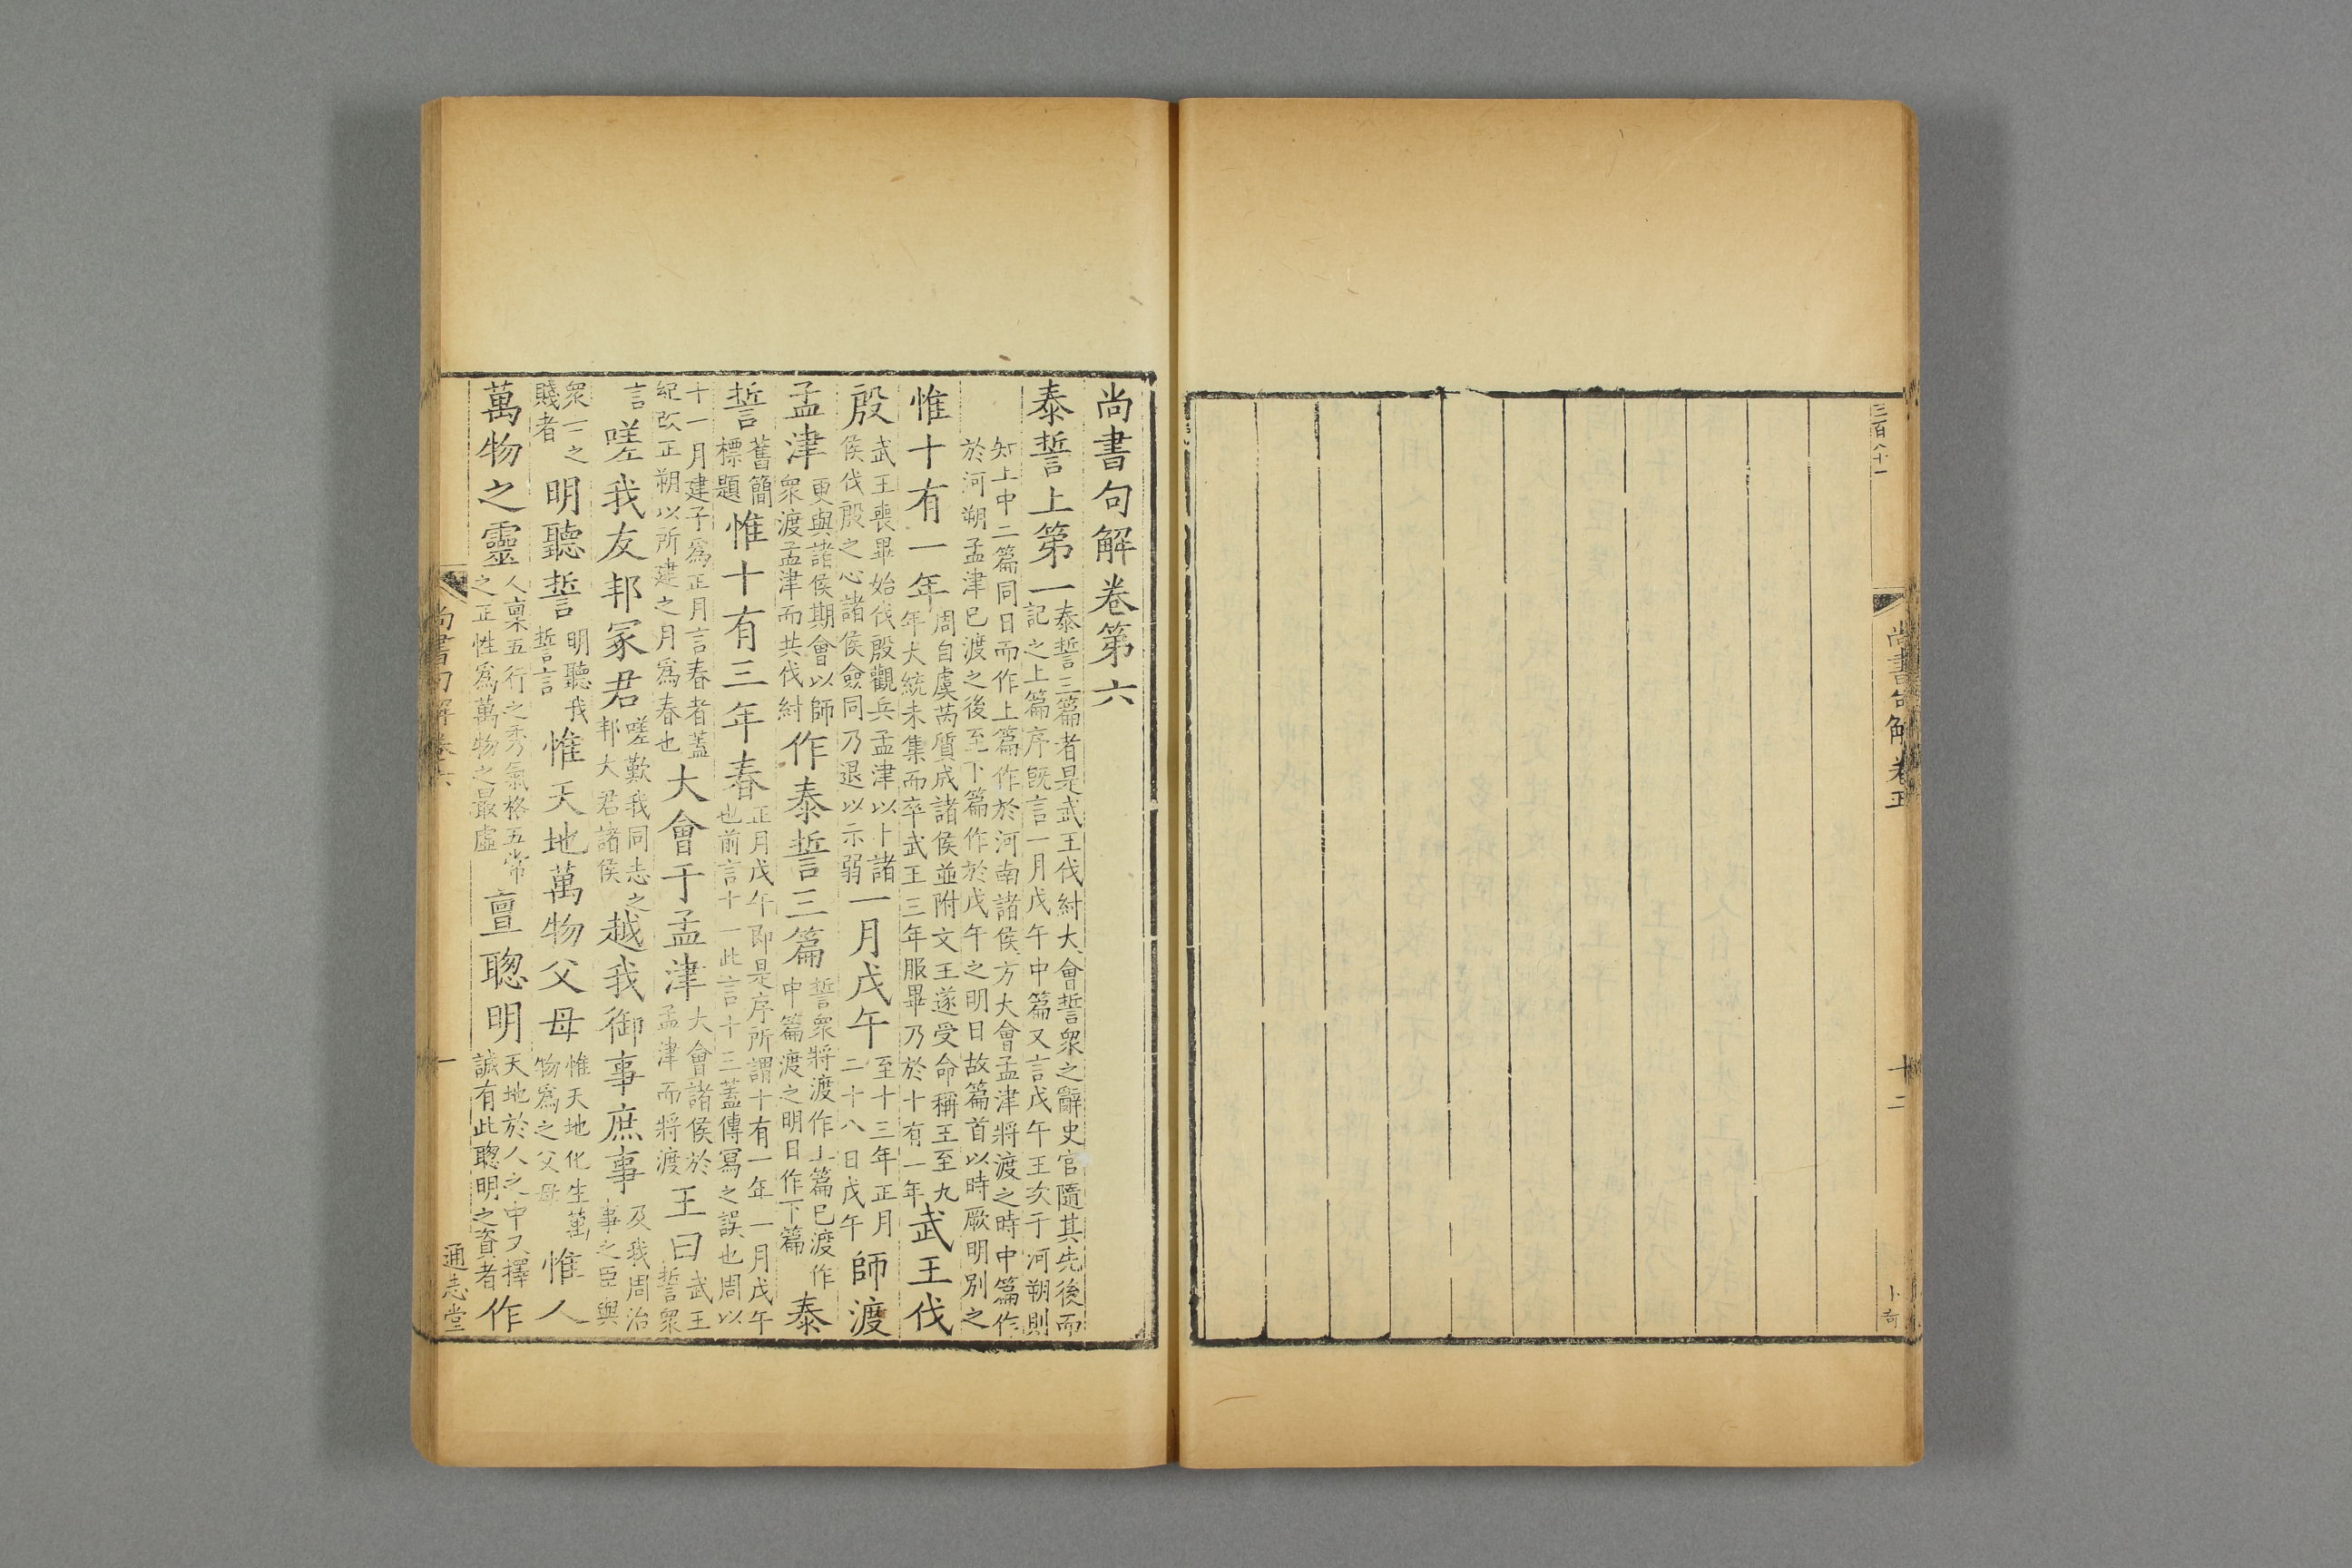 三百八十一
尚書句解卷五
十二
卜奇
尚書句解卷第六
泰誓上第一泰誓三篇者是武王伐紂大會誓衆之辭史官隨其先後而記之上篇序旣言一月戊午中篇又言戊午王次于河朔則
知上中二篇同日而作上篇作於河南諸侯方大會孟津將渡之時中篇作於河朔孟津已渡之後至下篇作於戊午之明日故篇首以時厥明別之
惟十有一年周自虞芮質成諸侯並附文王遂受命稱王至九年大統未集而卒武王三年服畢乃於十有一年武王伐
殷武王喪畢始伐殷觀兵孟津以卜諸侯伐殷之心諸侯僉同乃退以示弱一月戊午至十三年正月二十八日戊午師渡
孟津更與諸侯期會以師衆渡孟津而共伐紂作泰誓三篇誓衆將渡作上篇已渡作中篇渡之明日作下篇泰
誓舊簡標題惟十有三年春正月戊午即是序所謂十有一年一月戊午也前言十一此言十三蓋傳寫之誤也周以
十一月建子爲正月言春者蓋紀改正朔以所建之月爲春也大會于孟津大會諸侯於孟津而將渡王曰武王誓衆
言嗟我友邦冢君嗟歎我同志之邦大君諸侯越我御事庶事及我周治事之臣與
衆一之賤者明聽誓明聽我誓言惟天地萬物父母惟天地化生萬物爲之父母惟人
萬物之靈人稟五行之秀氣格五常之正性爲萬物之最虛亶聰明天地於人之中又擇誠有此聰明之資者作
尚書句解卷六
一
通志堂